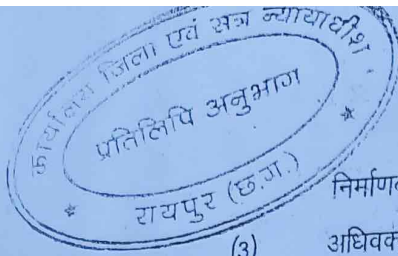 कार्यालय जिला एवं सत्र न्यायाधीश
प्रतिलिपि अनुभाग
रायपुर (छ.ग.)
(3)